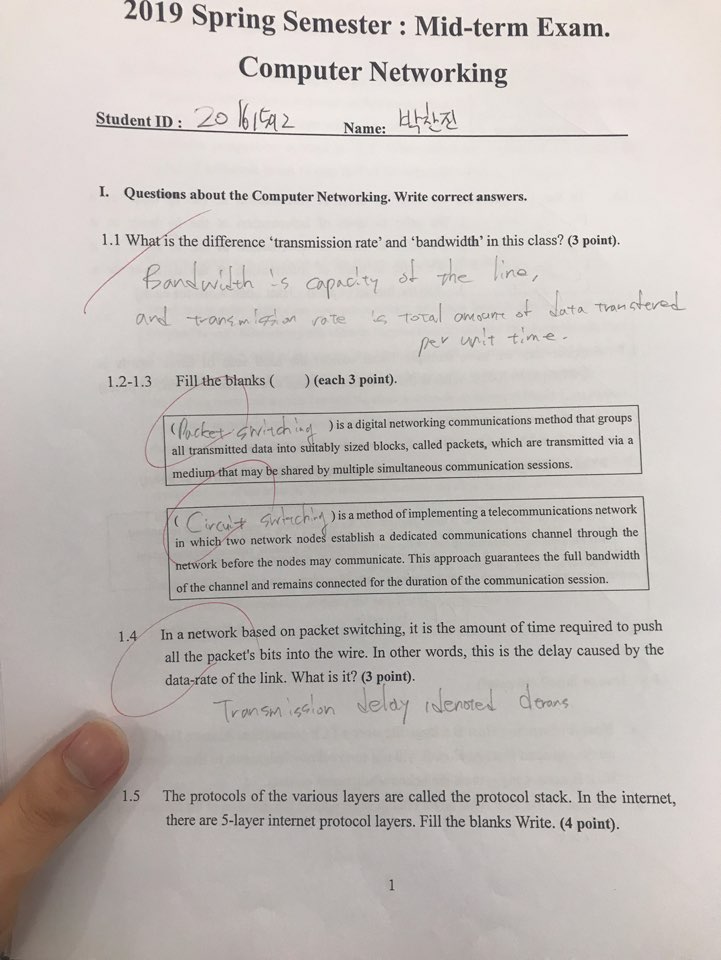 2019 Spring Semester : Mid-term Exam.
Computer Networking
Student ID : 20161592 Name: 박찬진
I. Questions about the Computer Networking. Write correct answers.
1.1 What is the difference ‘transmission rate’ and ‘bandwidth’ in this class? (3 point).
Bandwidth is capacity of the line,
and transmission rate is total amount of data transfered
per unit time.
1.2-1.3 Fill the blanks ( ) (each 3 point).
(Packet switching ) is a digital networking communications method that groups
all transmitted data into suitably sized blocks, called packets, which are transmitted via a
medium that may be shared by multiple simultaneous communication sessions.
( Circuit switching ) is a method of implementing a telecommunications network
in which two network nodes establish a dedicated communications channel through the
network before the nodes may communicate. This approach guarantees the full bandwidth
of the channel and remains connected for the duration of the communication session.
1.4 In a network based on packet switching, it is the amount of time required to push
all the packet's bits into the wire. In other words, this is the delay caused by the
data-rate of the link. What is it? (3 point).
Transmission delay denoted dtrans
1.5 The protocols of the various layers are called the protocol stack. In the internet,
there are 5-layer internet protocol layers. Fill the blanks Write. (4 point).
1